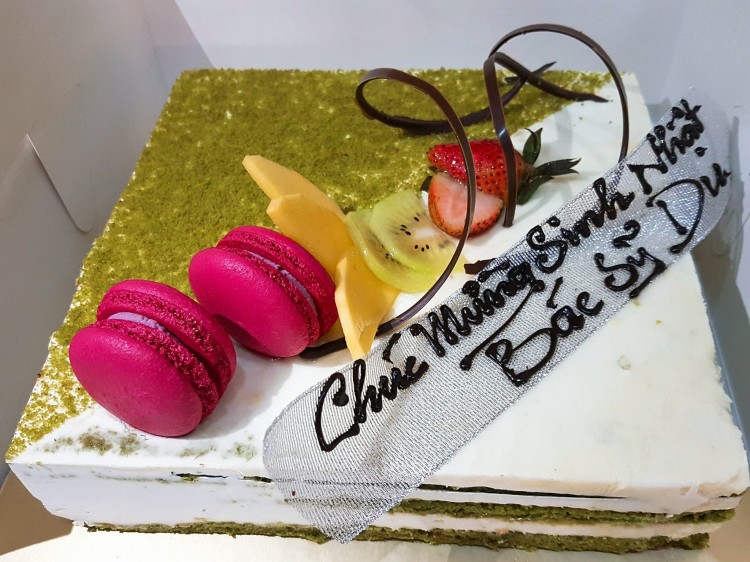 Chúc Mừng Sinh Nhật
Bác Sỹ Dịu